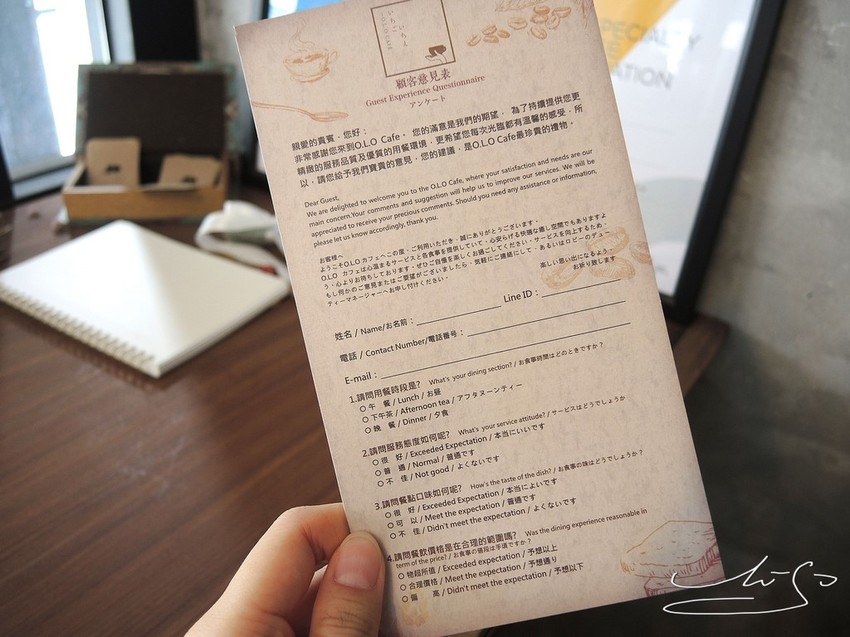 いちご
いちえ
顧客意見表
Guest Experience Questionnaire
アンケート
親愛的貴賓，您好：
非常感謝您來到O.L.O Cafe。 您的滿意是我們的期望， 為了持續提供您更
精緻的服務品質及優質的用餐環境，更希望您每次光臨都有溫馨的感受，所
以，請您給予我們寶貴的意見，您的建議，是O.L.O Cafe最珍貴的禮物。
Dear Guest,
We are delighted to welcome you to the O.L.O Cafe, where your satisfaction and needs are our
main concern.Your comments and suggestion will help us to improve our services. We will be
appreciated to receive your precious comments. Should you need any assistance or information,
please let us know accordingly, thank you.
お客様へ
ようこそO.L.Oカフェへこの度、ご利用いただき、誠にありがとうございます。
O.L.O カフェは心温まるサービスと各食事を提供していて、心安らげる快適な癒し空間でもありますよ
う、心よりお待ちしております。ぜひご自慢を楽しくお過ごしてください。サービスを向上するため、
もし何かのご意見またはご要望がございましたら、気軽にご連絡にして、あるいはロビーのデュー
ティーマネージャーへお申し付けください。
楽しい思い出になるよう、
お祈り致します
姓名 / Name/お名前： Line ID：
電話 / Contact Number/電話番号：
E-mail：
1.請問用餐時段是? What's your dining section? / お食事時間はどのときですか？
午 餐 / Lunch / お昼
下午茶 / Afternoon tea / アフタヌーンティー
晚 餐 / Dinner / 夕食
2.請問服務態度如何呢? What's your service attitude? / サービスはどうでしょうか
很 好 / Exceeded Expectation / 本当にいいです
普 通 / Normal / 普通です
不 佳 / Not good / よくないです
3.請問餐點口味如何呢? How's the taste of the dish? / お食事の味はどうでしょうか？
很 好 / Exceeded Expectation / 本当によいです
可 以 / Meet the expectation / 普通です
不 佳 / Didn't meet the expectation / よくないです
4.請問餐飲價格是在合理的範圍嗎? Was the dining experience reasonable in
term of the price? / お食事の値段は手頃ですか？
物超所值 / Exceeded expectation / 予想以上
合理價格 / Meet the expectation / 予想通り
偏 高 / Didn't meet the expectation / 予想以下